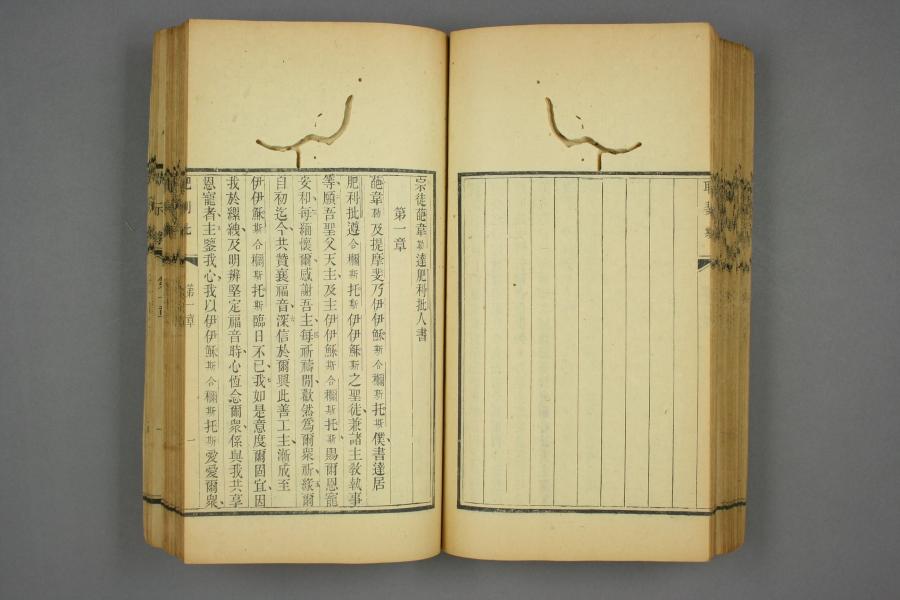 宗徒葩韋勒達肥利批人書
第一章
葩韋勒及提摩斐乃伊伊穌斯合穪斯托斯僕書達居
肥利批遵合穪斯托斯伊伊穌斯之聖徒兼諸主敎執事
等願吾聖父天主及主伊伊穌斯合穪斯托斯賜爾恩寵
安和每緬懷爾感謝吾主每祈禱間歡然爲爾衆祈緣爾
自初迄今共贊襄福音深信於爾興此善工主漸成至
伊伊穌斯合穪斯托斯臨日不已我如是意度爾固宜因
我於縲絏及明辨堅定福音時心恆念爾衆係與我共享
恩寵者主鑒我心我以伊伊穌斯合穪斯托斯愛愛爾衆
肥利批
第一章
一